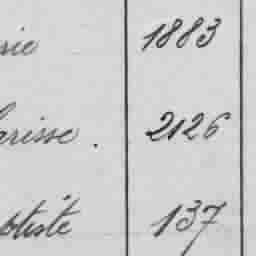 rie 1883
arisse. 2126
ptiste 137